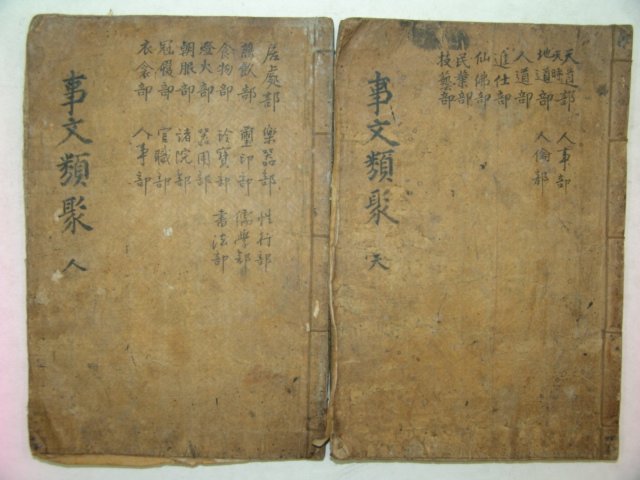 天道部
天時
地道部
人道部
進仕部
仙佛部
民業部
技藝部
人事部
人倫部
事文類聚
天
居處部
燕飮部
食物部
燈火部
朝服部
冠履部
衣衾部
樂器部
璽印部
珍寶部
器用部
諸院部
官職部
人事部
性行部
儒學部
書法部
事文類聚
人